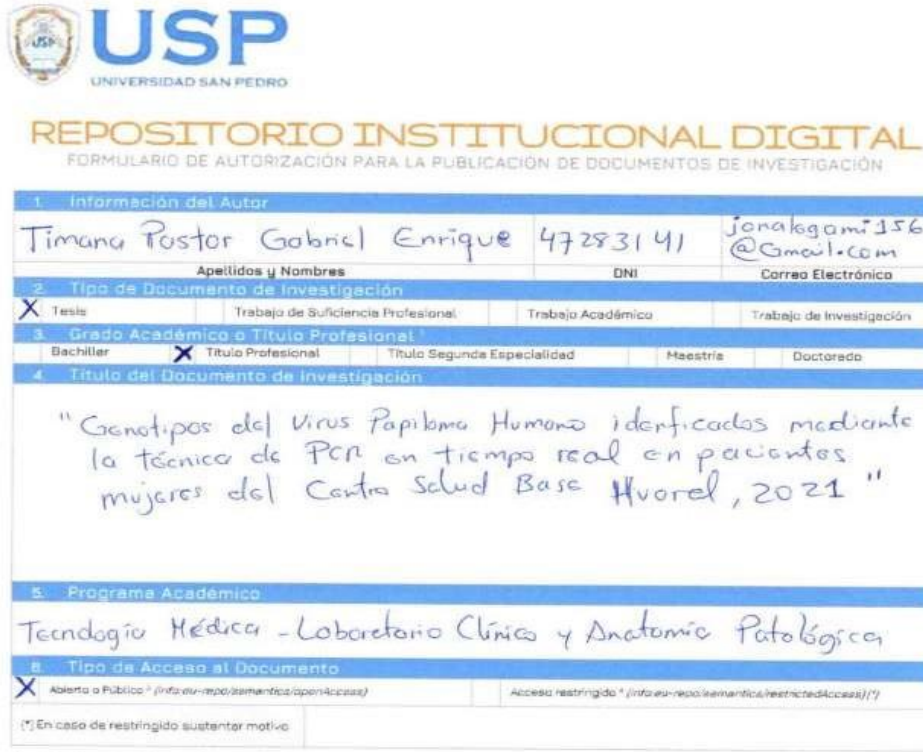 USP
USP
UNIVERSIDAD SAN PEDRO
REPOSITORIO INSTITUCIONAL DIGITAL
FORMULARIO DE AUTORIZACIÓN PARA LA PUBLICACIÓN DE DOCUMENTOS DE INVESTIGACIÓN
1. Información del Autor
Timana Pastor Gabriel Enrique 47283141 jonalogami156
@Gmail.com
Apellidos y Nombres DNI Correo Electrónico
2. Tipo de Documento de Investigación
X Tesis Trabajo de Suficiencia Profesional Trabajo Académico Trabajo de Investigación
3. Grado Académico o Título Profesional ¹
Bachiller X Título Profesional Título Segunda Especialidad Maestría Doctorado
4. Título del Documento de Investigación
"Genotipos del Virus Papiloma Humano idenficados mediante
la técnica de PCR en tiempo real en pacientes
mujeres del Centro Salud Base Huaral, 2021"
5. Programa Académico
Tecnología Médica - Laboratorio Clínico y Anatomía Patológica
6. Tipo de Acceso al Documento
X Abierto o Público ² (info:eu-repo/semantics/openAccess) Acceso restringido ⁴ (info:eu-repo/semantics/restrictedAccess)(*)
(*) En caso de restringido sustentar motivo